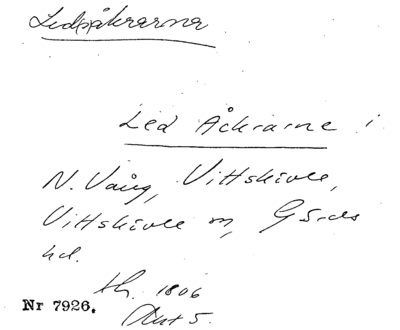 Ledåkrarna
Led Åkrarne i
N. Vång, Vittskövle,
Vittskövle sn, Gärds
hd.
Ch. 1806
Nr 7926. Akt 5.